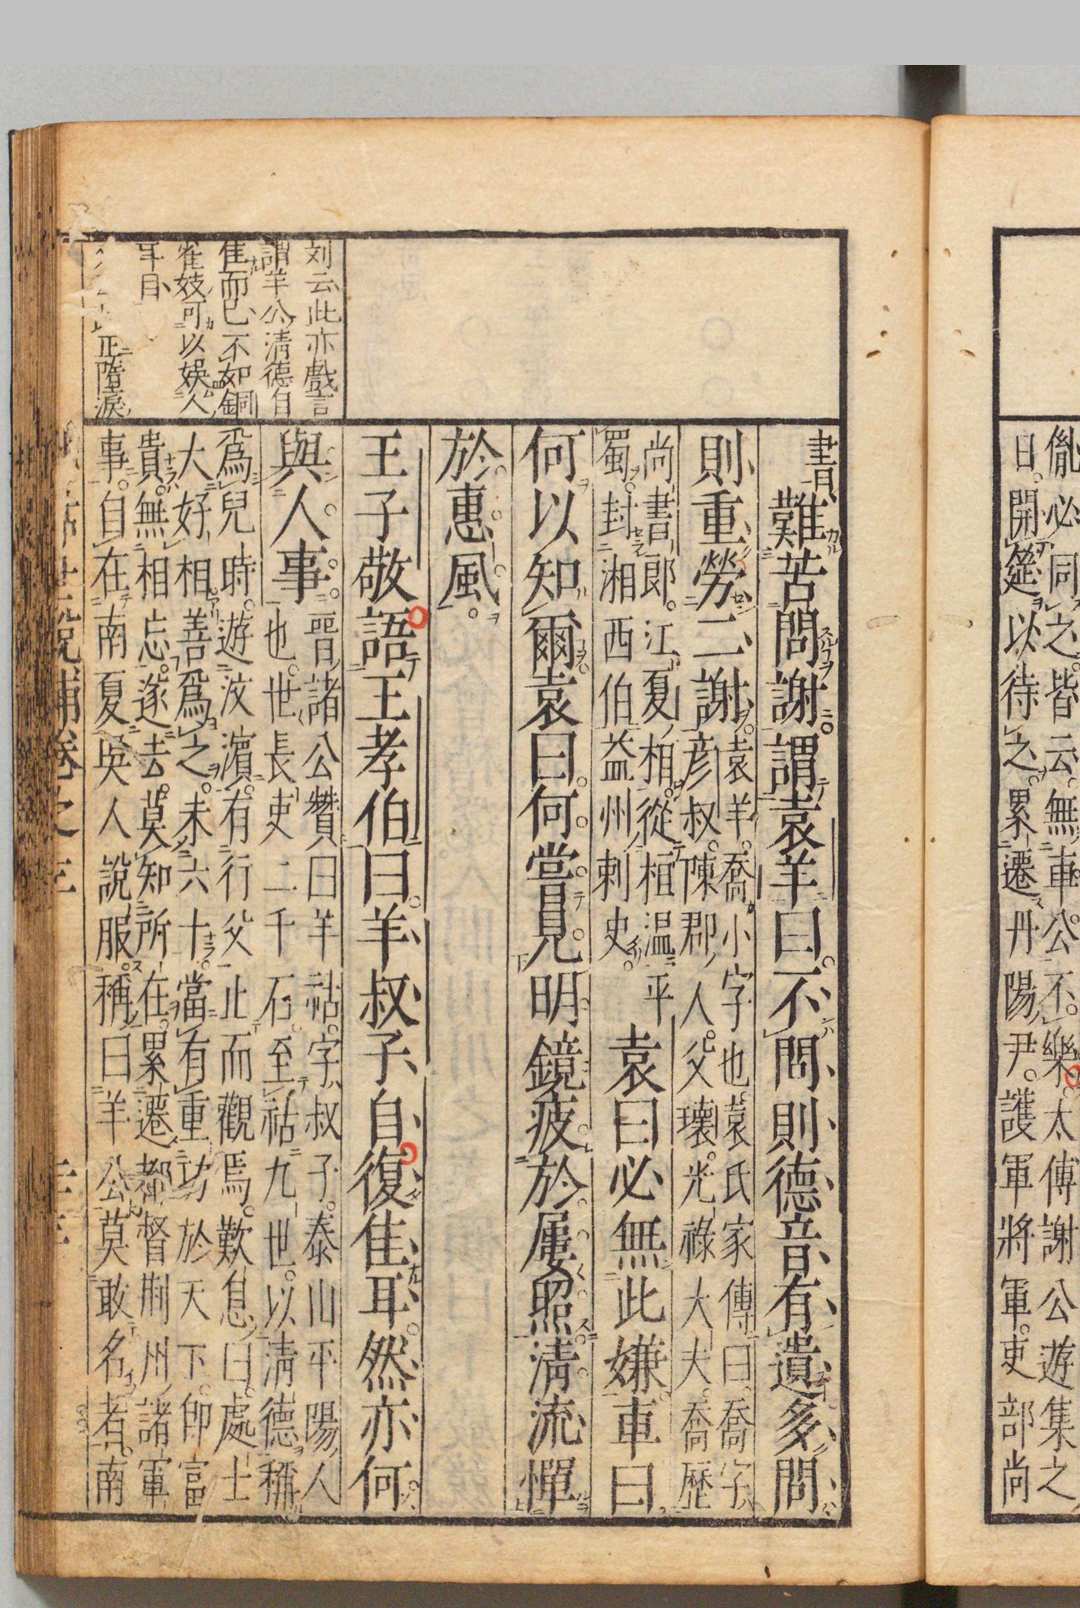 胤必同之皆云無車公不樂太傅謝公遊集之
日開筵以待之累遷丹陽尹護軍將軍吏部尚
書難苦問謝謂袁羊曰不問則德音有遺多問
則重勞二謝
袁羊喬小字也袁氏家傳曰喬字
彦叔陳郡人父瓌光祿大夫喬歷
尚書郎江夏相從桓温平
蜀封湘西伯益州刺史
袁曰必無此嫌車曰
何以知爾袁曰何嘗見明鏡疲於屢照清流憚
於惠風
王子敬語王孝伯曰羊叔子自復佳耳然亦何
與人事
晉諸公贊曰羊祜字叔子泰山平陽人
也世長吏二千石至祜九世以清德稱
爲兒時遊汶濵有行父止而觀焉歎息曰處士
大好相善爲之未六十當有重功於天下即富
貴無相忘遂去莫知所在累遷都督荆州諸軍
事自在南夏吳人說服稱曰羊公莫敢名者南
刘云此亦戲言
謂羊公清德自
佳而已不如銅
雀妓可以娯人
耳目
正墮淚